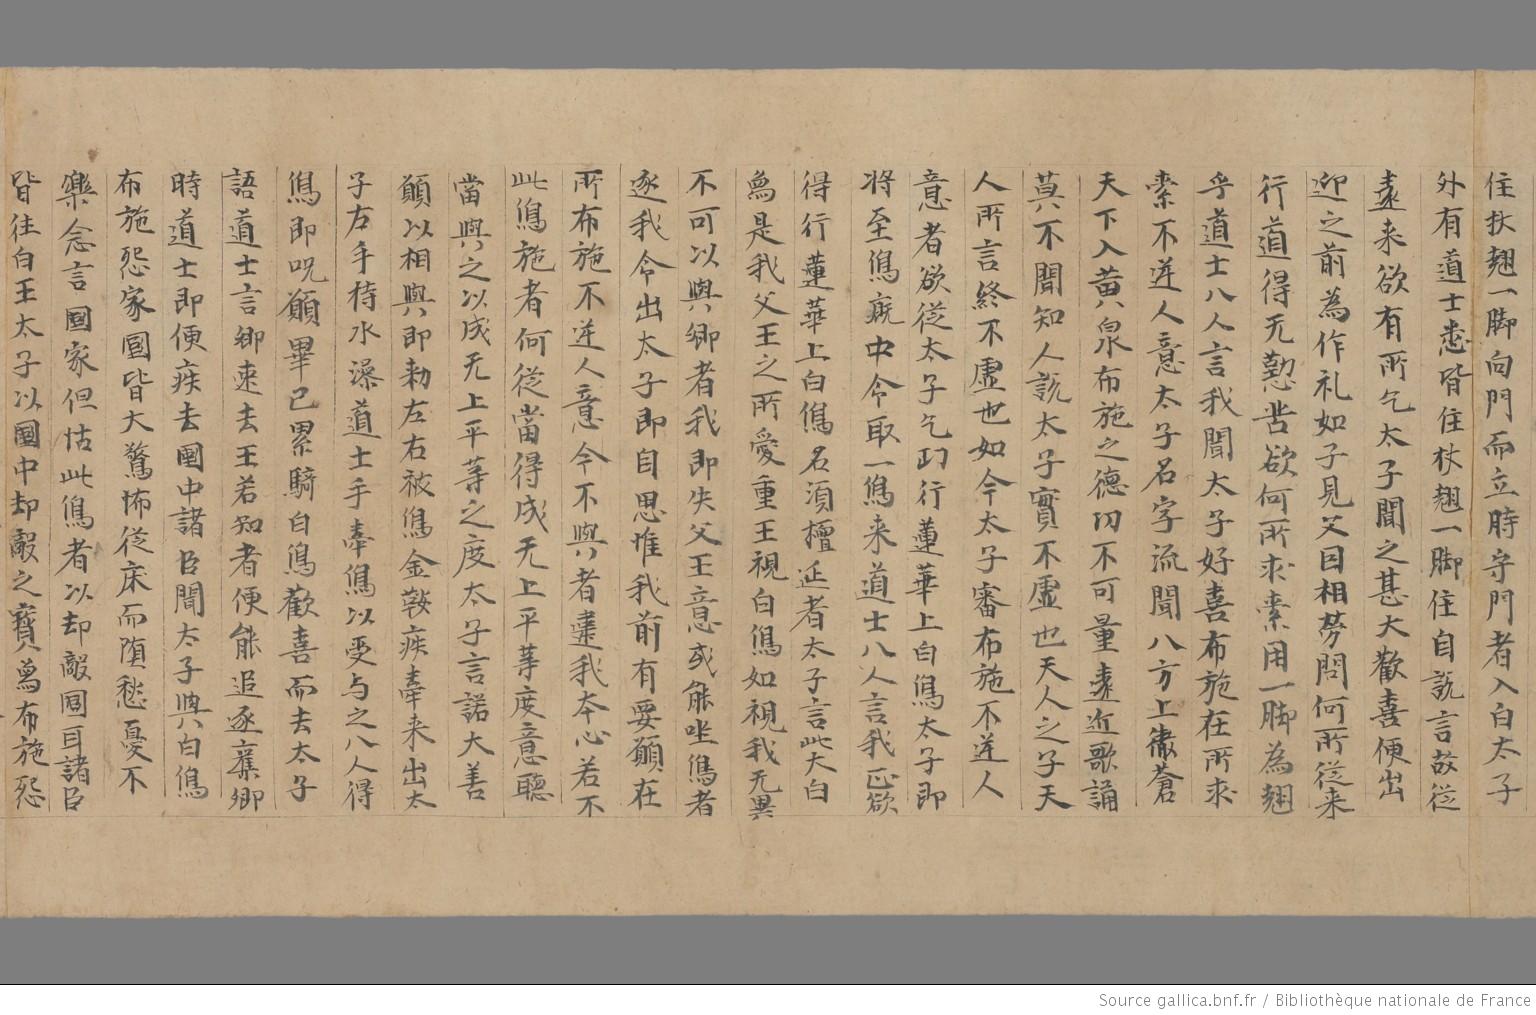 住扶翹一脚向門而立時守門者入白太子
外有道士悉皆住杖翹一脚住自説言故從
遠来欲有所乞太子聞之甚大歡喜便出
迎之前為作礼如子見父因相勞問何所從来
行道得无懃苦欲何所求索用一脚為翹
乎道士八人言我聞太子好喜布施在所求
索不逆人意太子名字流聞八方上徹蒼
天下入黄泉布施之德功不可量遠近歌誦
莫不聞知人説太子實不虛也天人之子天
人所言終不虛也如今太子審布施不逆人
意者欲從太子乞丐行蓮華上白鳥太子即
将至鳥廐中令取一鳥来道士八人言我正欲
得行蓮華上白鳥名須檀延者太子言此大白
鳥是我父王之所愛重王視白鳥如視我无異
不可以與卿者我即失父王意或能坐鳥者
逐我令出太子即自思惟我前有要願在
所布施不逆人意今不與者違我本心若不
此鳥施者何從當得成无上平等度意聽
當與之以成无上平等之度太子言諾大善
願以相與即勑左右被鳥金鞍疾牽来出太
子左手持水澡道士手牽鳥以受与之八人得
鳥即呪願畢已累騎白鳥歡喜而去太子
語道士言卿速去王若知者便能追逐棄卿
時道士即便疾去國中諸臣聞太子與白鳥
布施怨家國皆大驚怖從床而墮愁憂不
樂念言國家但怙此鳥者以却敵國耳諸臣
皆往白王太子以國中却敵之寶鳥布施怨
Source gallica.bnf.fr / Bibliothèque nationale de France